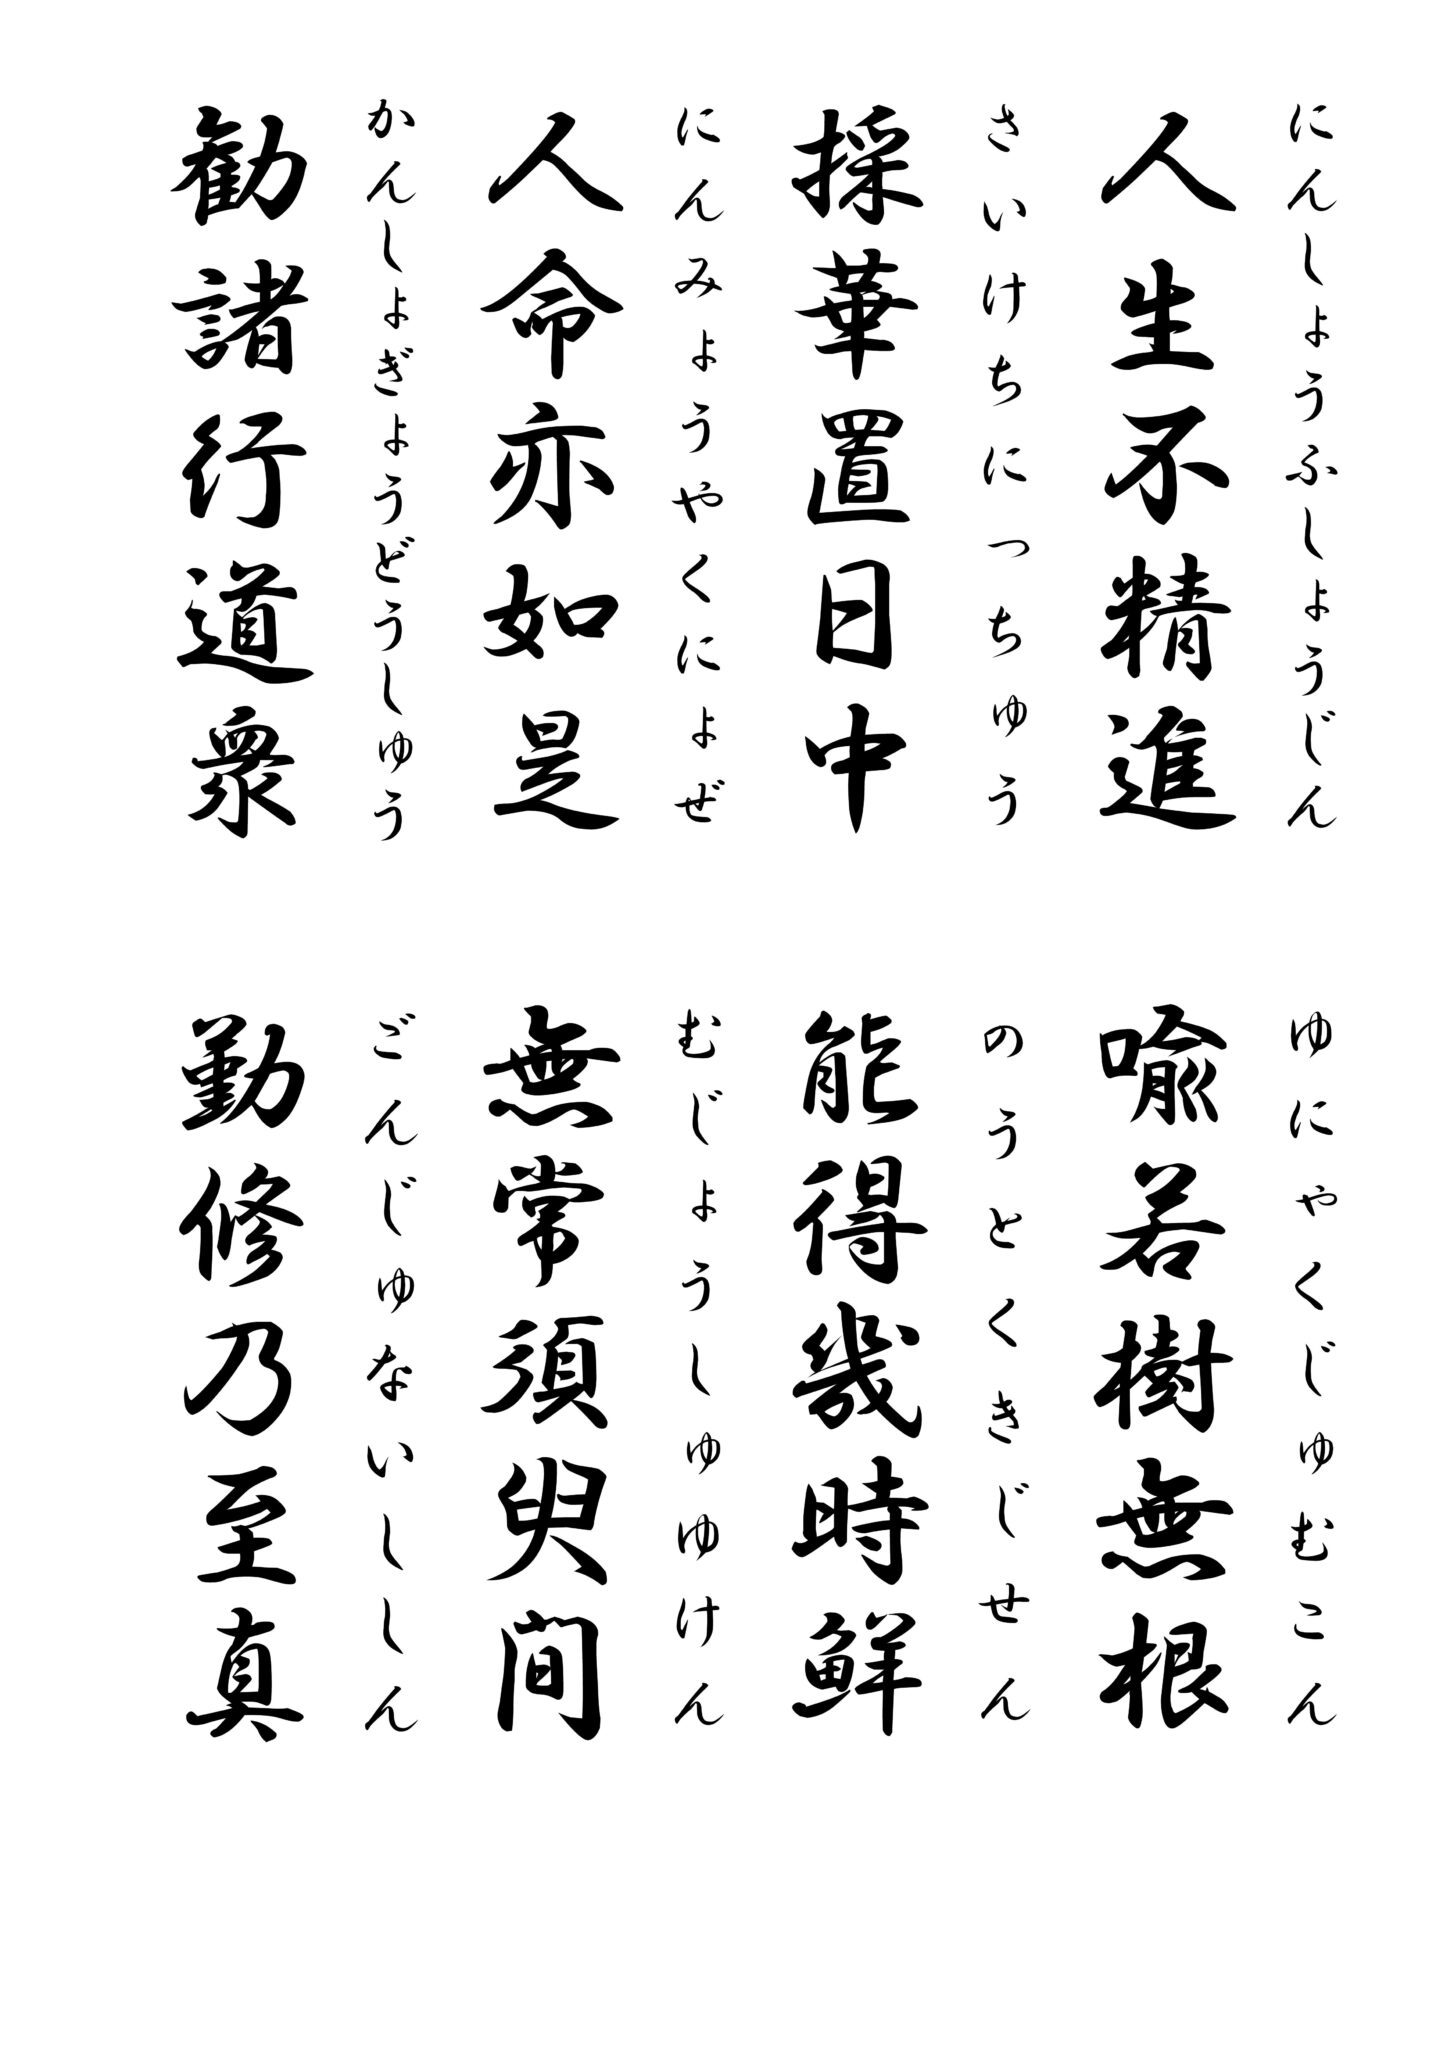 にんしょうふしょうじん
人生不精進
ゆにゃくじゅむこん
喩若樹無根
さいけちにっちゅう
採華置日中
のうとくきじせん
能得幾時鮮
にんみょうやくにょぜ
人命亦如是
むじょうしゅゆけん
無常須臾間
かんしょぎょうどうしゅう
勧諸行道衆
ごんじゅないししん
勤修乃至真